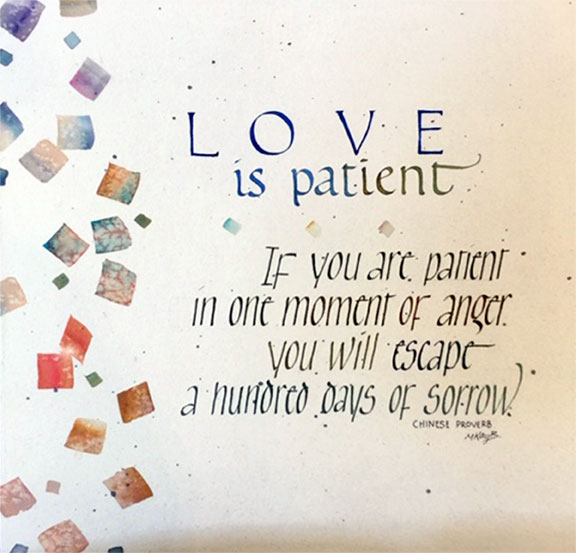 LOVE
is patient
If you are patient
in one moment of anger.
you will escape
a hundred days of sorrow.
CHINESE PROVERB